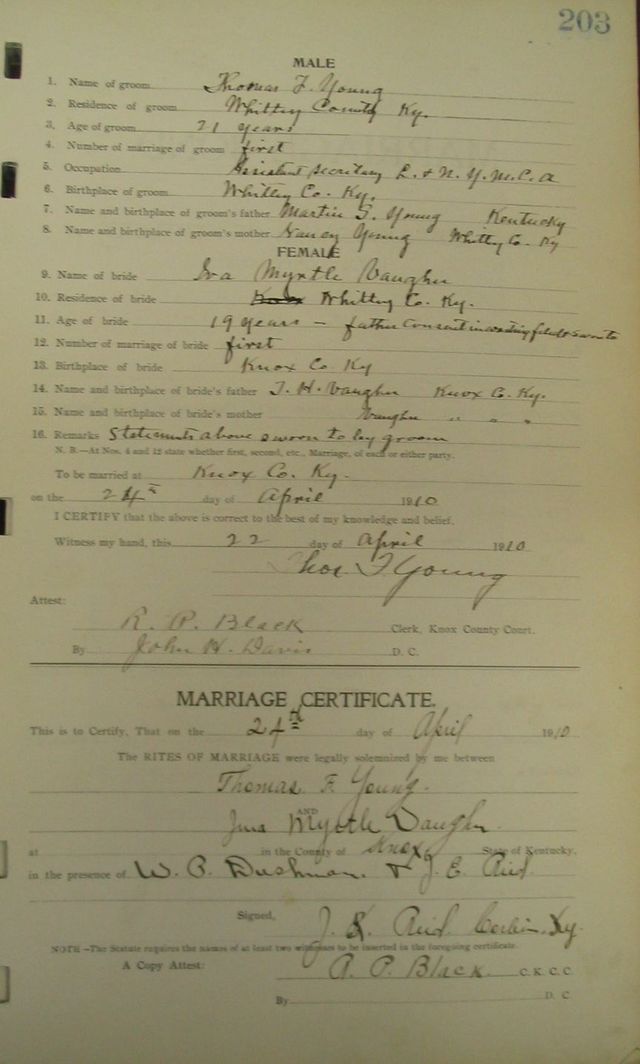 203
MALE
1. Name of groom Thomas F. Young
2. Residence of groom Whitley County Ky.
3. Age of groom 21 years
4. Number of marriage of groom first
5. Occupation Assistant Secretary L. & N. Y.M.C.A
6. Birthplace of groom Whitley Co. Ky.
7. Name and birthplace of groom's father Martin T. Young Kentucky
8. Name and birthplace of groom's mother Nancy Young Whitley Co. Ky
FEMALE
9. Name of bride Iva Myrtle Vaughn
10. Residence of bride Knox Whitley Co. Ky.
11. Age of bride 19 years – father consent in writing filed & sworn to
12. Number of marriage of bride first
13. Birthplace of bride Knox Co. Ky
14. Name and birthplace of bride's father T. H. Vaughn Knox Co. Ky.
15. Name and birthplace of bride's mother Vaughn " " "
16. Remarks Statements above sworn to by groom
N. B.—At Nos. 4 and 12 state whether first, second, etc., Marriage, of each or either party.
To be married at Knox Co. Ky.
on the 24th day of April 1910
I CERTIFY that the above is correct to the best of my knowledge and belief.
Witness my hand, this 22 day of April 1910
Thos F Young
Attest:
R. P. Black Clerk, Knox County Court.
By John H. Davis D. C.
MARRIAGE CERTIFICATE.
This is to Certify, That on the 24th day of April 1910
The RITES OF MARRIAGE were legally solemnized by me between
Thomas F. Young.
AND
Myrtle Vaughn
at in the County of Knox State of Kentucky,
in the presence of W. P. & J. E. Reid
Signed, J. Reid. Corbin. Ky.
NOTE—The Statute requires the names of at least two witnesses to be inserted in the foregoing certificate.
A Copy Attest: R. P. Black C. K. C. C.
By D. C.